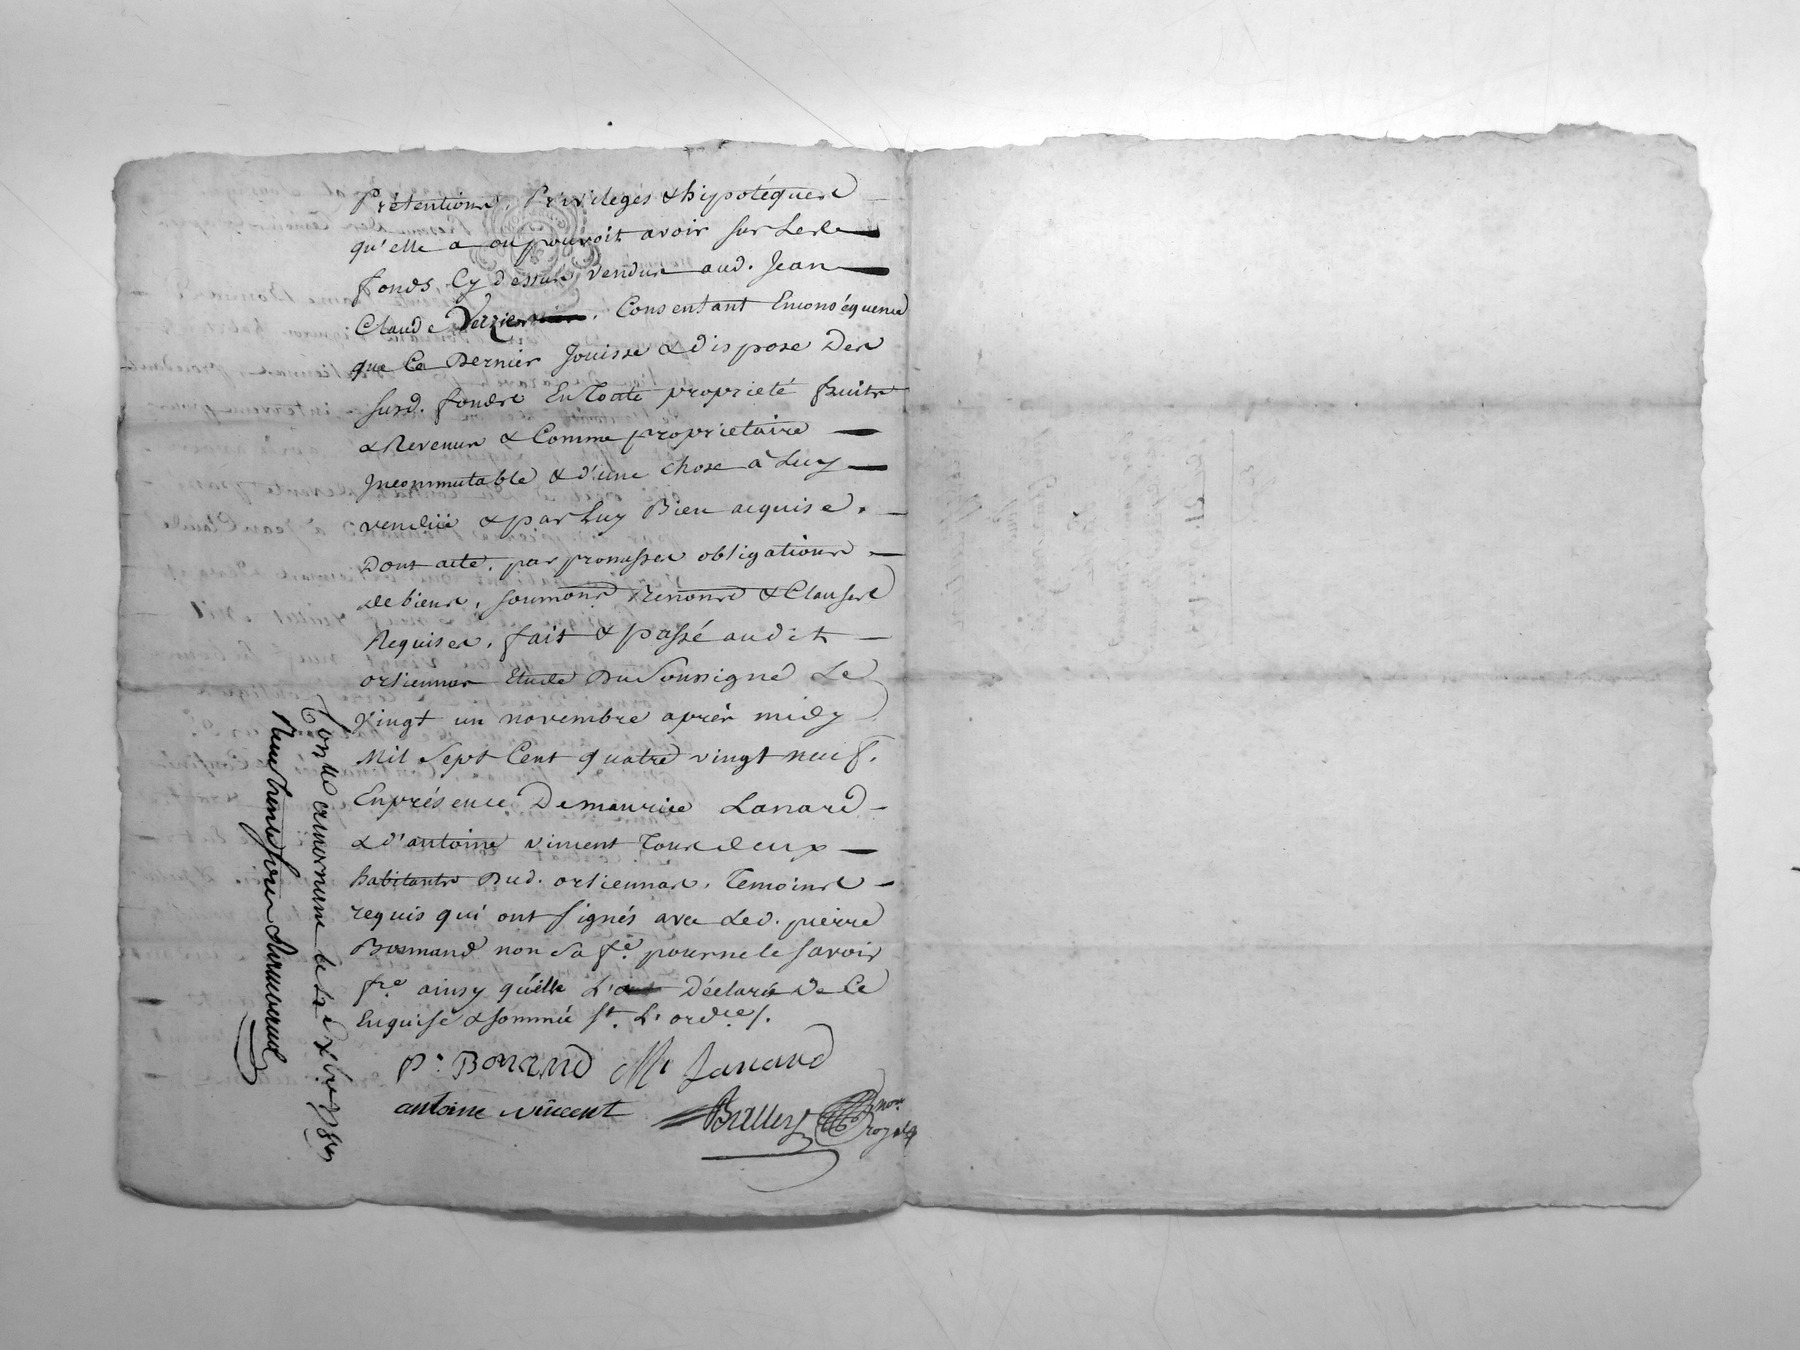 Prétentions, Privileges & hipotéques
qu'elle a ou pouvoit avoir sur Lesd.
fonds Cy dessus vendus aud. Jean
Claude Verzier. Consentant Enconséquence
que Ce Dernier Jouisse & dispose Des
susd. fonds En Toute proprieté fruits
& Revenus & Comme proprietaire
Incommutable & d'une chose à Luy
vendüe & par Luy Bien acquise.
Dont acte. par promesses obligations
de biens, soumons Renons & Clauses
Requises, fait & passé audit
orlienas Etude Du Soussigné Le
Vingt un novembre après midy
Mil Sept Cent quatre vingt neuf.
En présence De maurice Lanard
& d'antoine vincent Tous deux
habitants Dud. orlienas. Temoins
requis qui ont signés avec Led. pierre
non Sa fe. pour ne le savoir
fre. ainsy qu'elle L'a Déclaré De Ce
Enquise & sommée st. L. ordce.
antoine vincent
royal